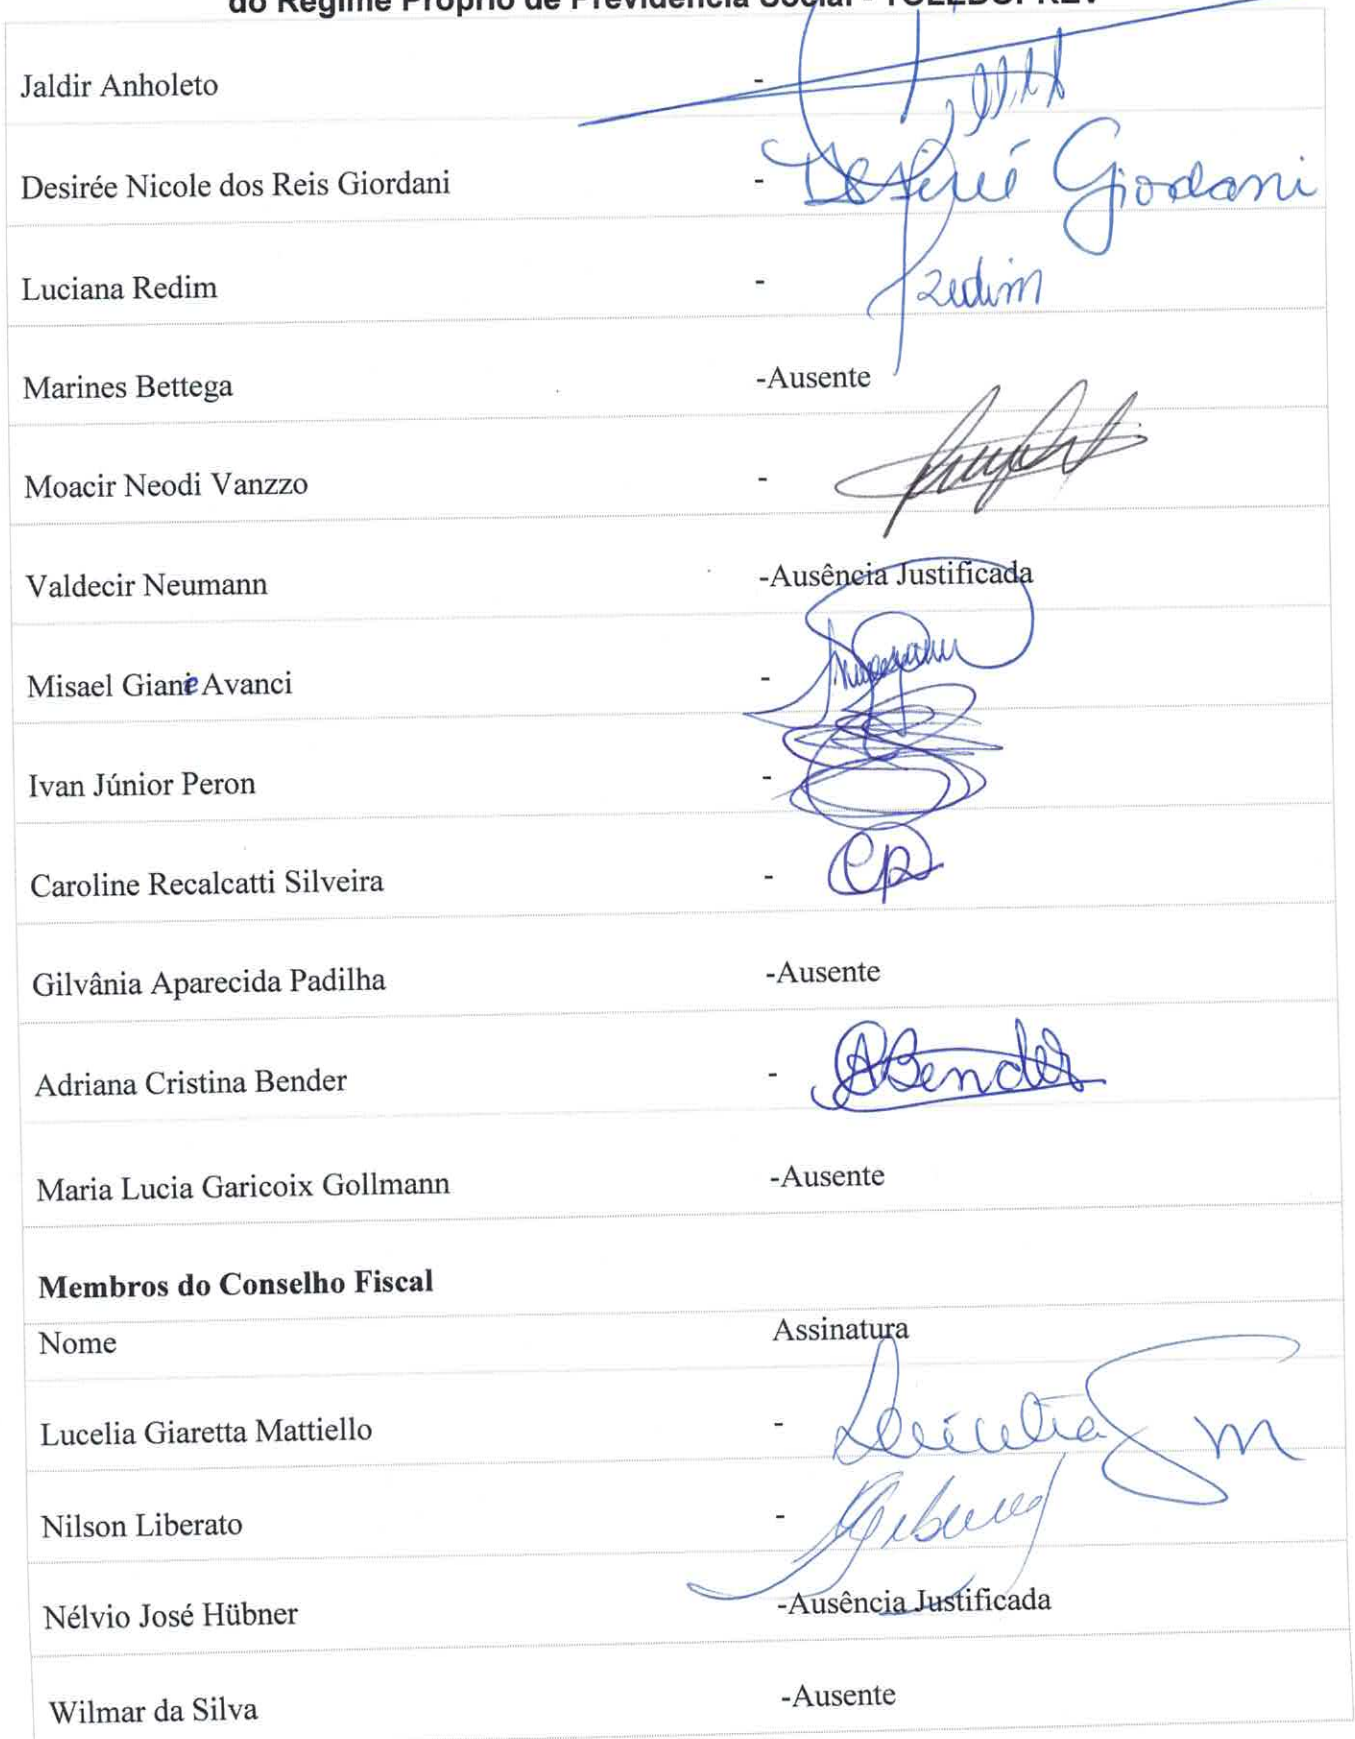 do Regime Próprio de Previdência Social - TOLEDOPREV
Jaldir Anholeto -
Desirée Nicole dos Reis Giordani - Desireé Giordani
Luciana Redim - Redim
Marines Bettega -Ausente
Moacir Neodi Vanzzo -
Valdecir Neumann -Ausência Justificada
Misael Giane Avanci -
Ivan Júnior Peron -
Caroline Recalcatti Silveira -
Gilvânia Aparecida Padilha -Ausente
Adriana Cristina Bender - ABender
Maria Lucia Garicoix Gollmann -Ausente
Membros do Conselho Fiscal
Nome Assinatura
Lucelia Giaretta Mattiello - Lucelia G m
Nilson Liberato -
Nélvio José Hübner -Ausência Justificada
Wilmar da Silva -Ausente